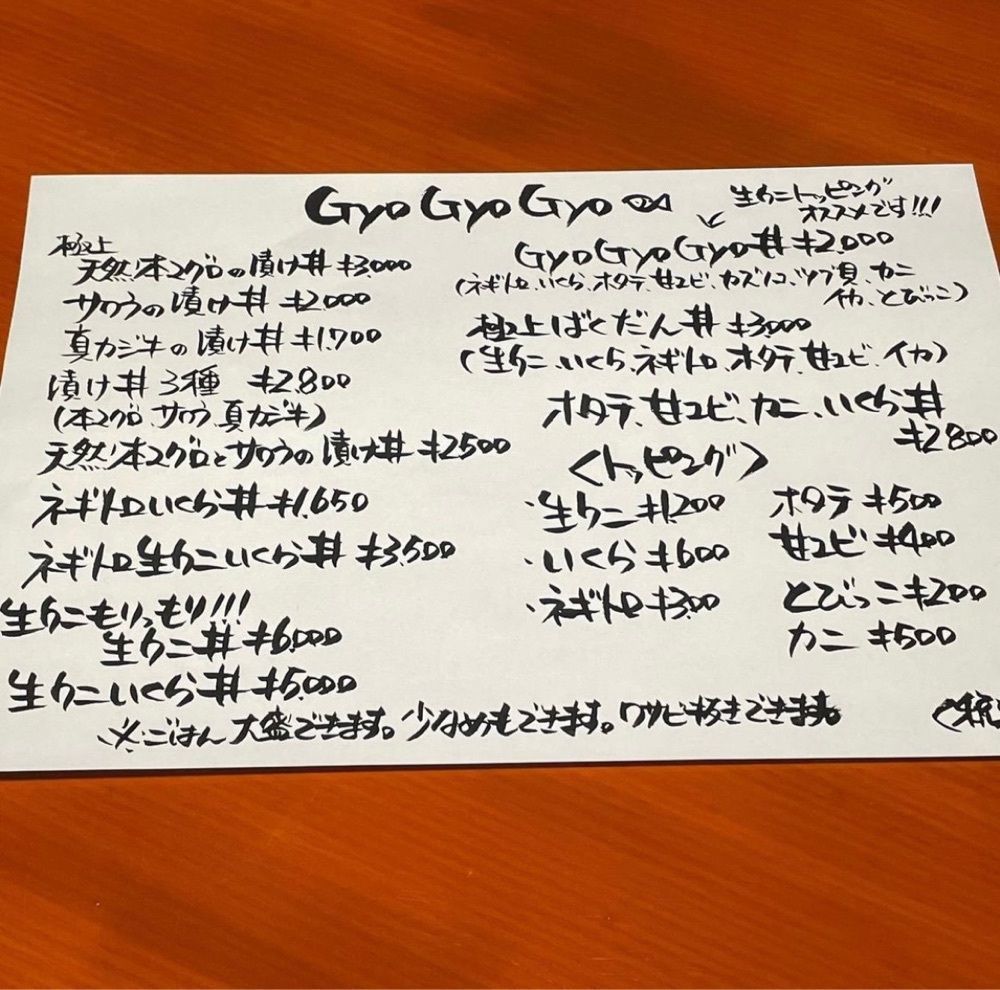 Gyo Gyo Gyo
極上
天然本マグロの漬け丼 ¥3,000
サワラの漬け丼 ¥2,000
真カジキの漬け丼 ¥1,700
漬け丼3種 ¥2,800
(本マグロ、サワラ、真カジキ)
天然本マグロとサワラの漬け丼 ¥2500
ネギトロいくら丼 ¥1,650
ネギトロ生ウニいくら丼 ¥3,500
生ウニもりっもり!!!
生ウニ丼 ¥6,000
生ウニいくら丼 ¥5,000
生ウニトッピング
オススメです!!!
Gyo Gyo Gyo丼 ¥2,000
(ネギトロ、いくら、ホタテ、甘エビ、カズノコ、ツブ貝、カニ
イカ、とびっこ)
極上ばくだん丼 ¥3,000
(生ウニ、いくら、ネギトロ、オタテ、甘エビ、イカ)
オタテ、甘エビ、カニ、いくら丼
¥2800
〈トッピング〉
・生ウニ ¥1,200
・いくら ¥600
・ネギトロ ¥300
ホタテ ¥500
甘エビ ¥400
とびっこ ¥200
カニ ¥500
※ごはん大盛できます。少なめもできます。ワサビ抜きできます。
(税